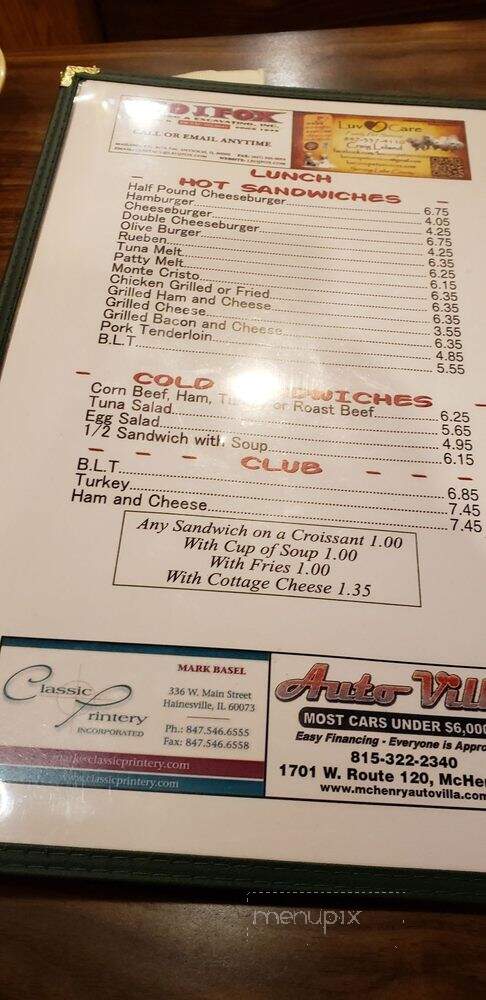 DIFOX
& EXCAVATING, INC.
SINCE
CALL OR EMAIL ANYTIME
Luv Care
Craig Leland
LUNCH
- HOT SANDWICHES -
Half Pound Cheeseburger 6.75
Hamburger 4.05
Cheeseburger 4.25
Double Cheeseburger 6.75
Olive Burger 4.25
Rueben 6.35
Tuna Melt 6.25
Patty Melt 6.15
Monte Cristo 6.35
Chicken Grilled or Fried 6.35
Grilled Ham and Cheese 6.35
Grilled Cheese 3.55
Grilled Bacon and Cheese 6.35
Pork Tenderloin 4.85
B.L.T. 5.55
- COLD SANDWICHES -
Corn Beef, Ham, Turkey or Roast Beef 6.25
Tuna Salad 5.65
Egg Salad 4.95
1/2 Sandwich with Soup 6.15
- - - - CLUB - - -
B.L.T. 6.85
Turkey 7.45
Ham and Cheese 7.45
Any Sandwich on a Croissant 1.00
With Cup of Soup 1.00
With Fries 1.00
With Cottage Cheese 1.35
Classic Printery
INCORPORATED
MARK BASEL
336 W. Main Street
Hainesville, IL 60073
Ph.: 847.546.6555
Fax: 847.546.6558
mark@classicprintery.com
www.classicprintery.com
Auto Vill
MOST CARS UNDER $6,000
Easy Financing - Everyone is Appro
815-322-2340
1701 W. Route 120, McHe
www.mchenryautovilla.com
menupix